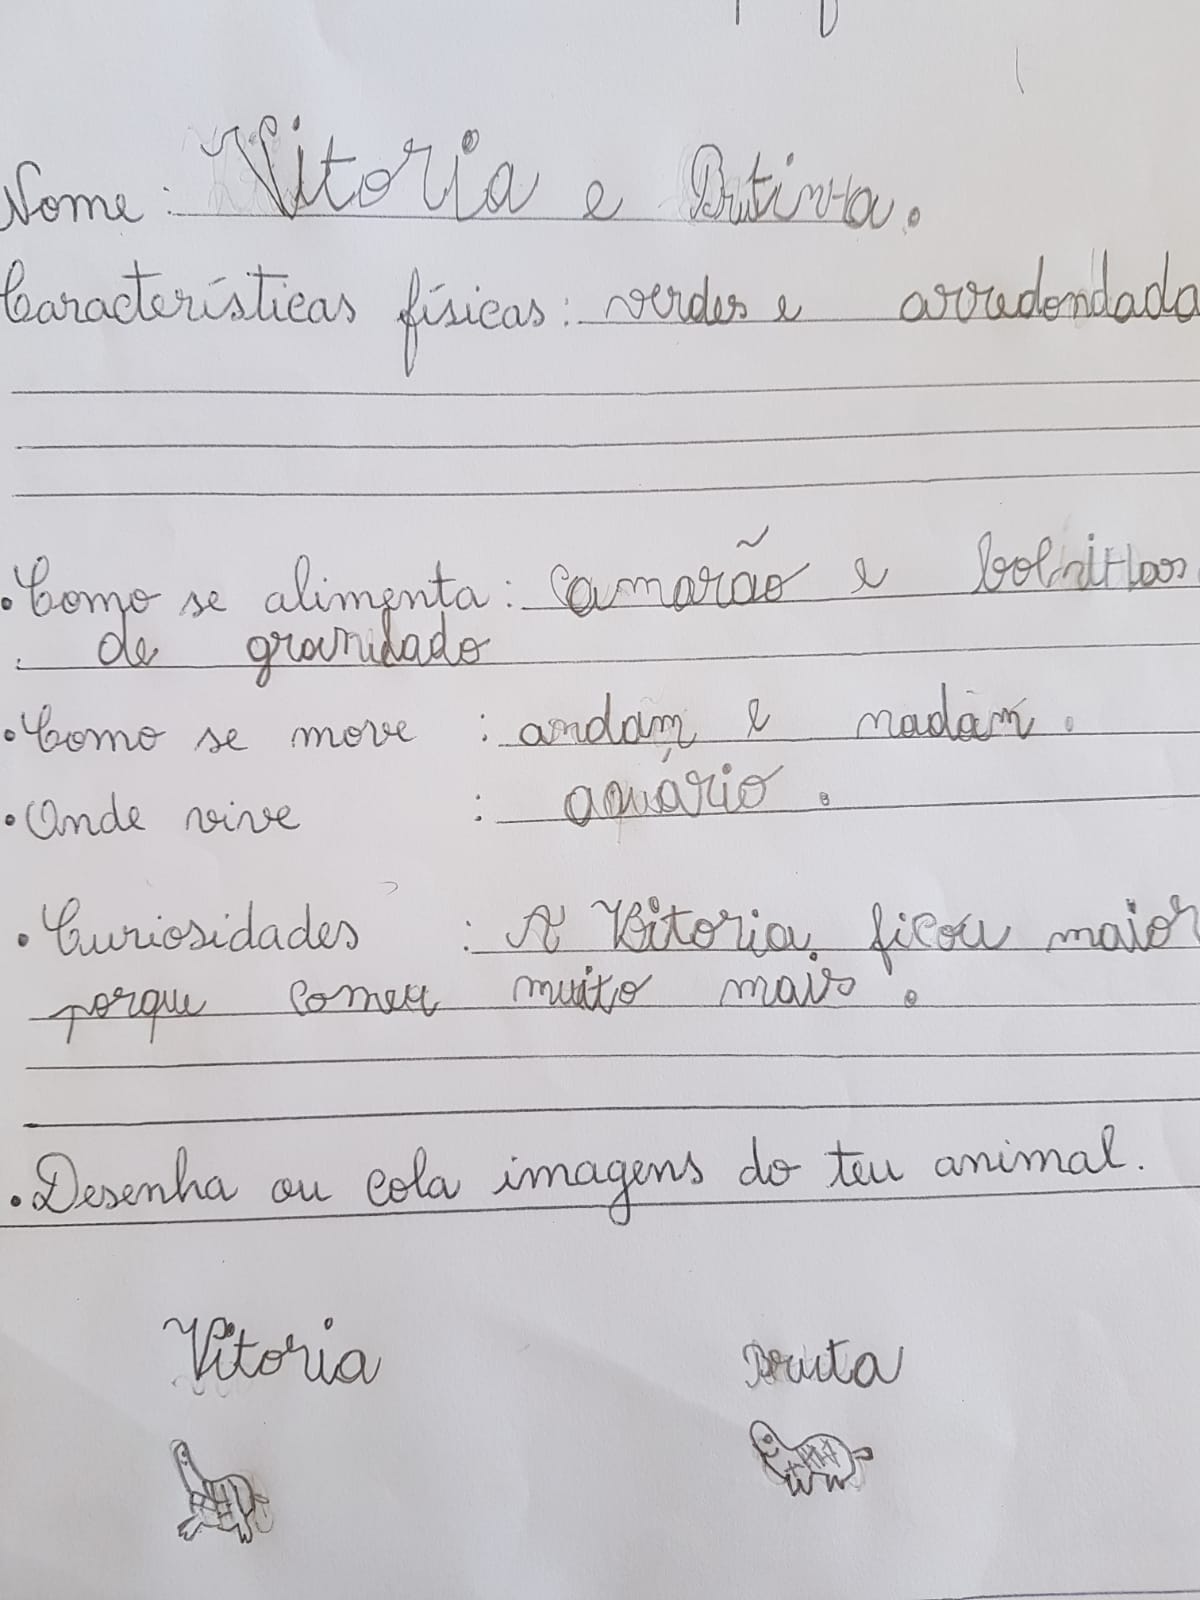 Nome: Vitoria e Brutinha.
Características físicas: verdes e arredondada
• Como se alimenta: camarão e bolinhas
de granulado
• Como se move : andam e nadam.
• Onde vive : aquário.
• Curiosidades : A Vitoria ficou maior
porque comeu muito mais.
• Desenha ou cola imagens do teu animal.
Vitoria Bruta